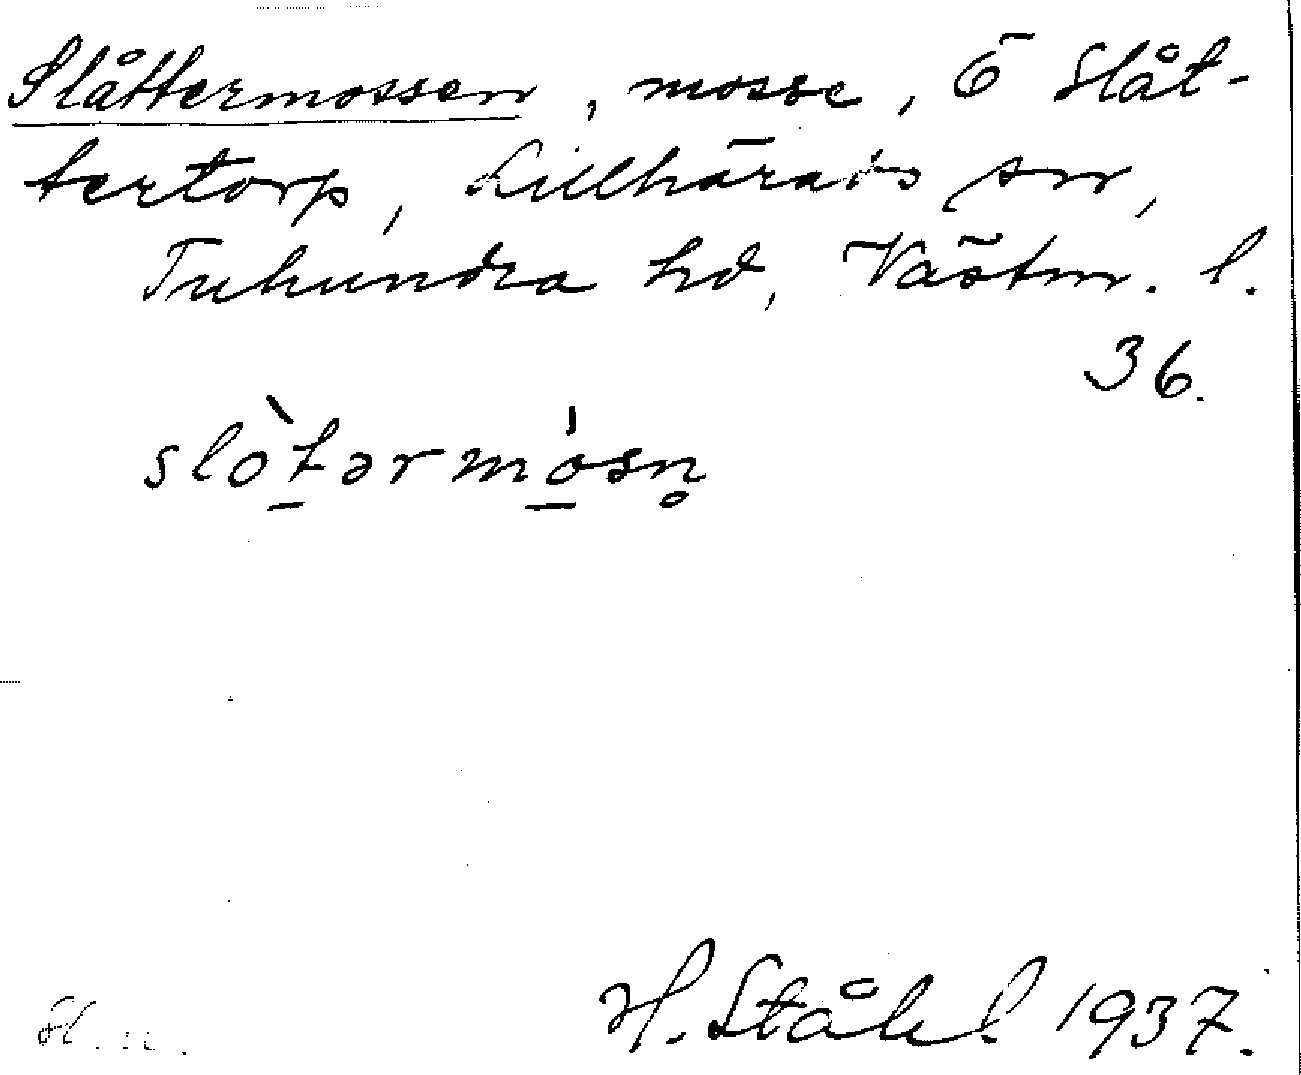 Slåttermossen, mosse, Ö Slåt-
tertorp, Lillhärads sn,
Tuhundra hd, Västm. l.
36.
slòtərmósn̥
H. Ståhl 1937.